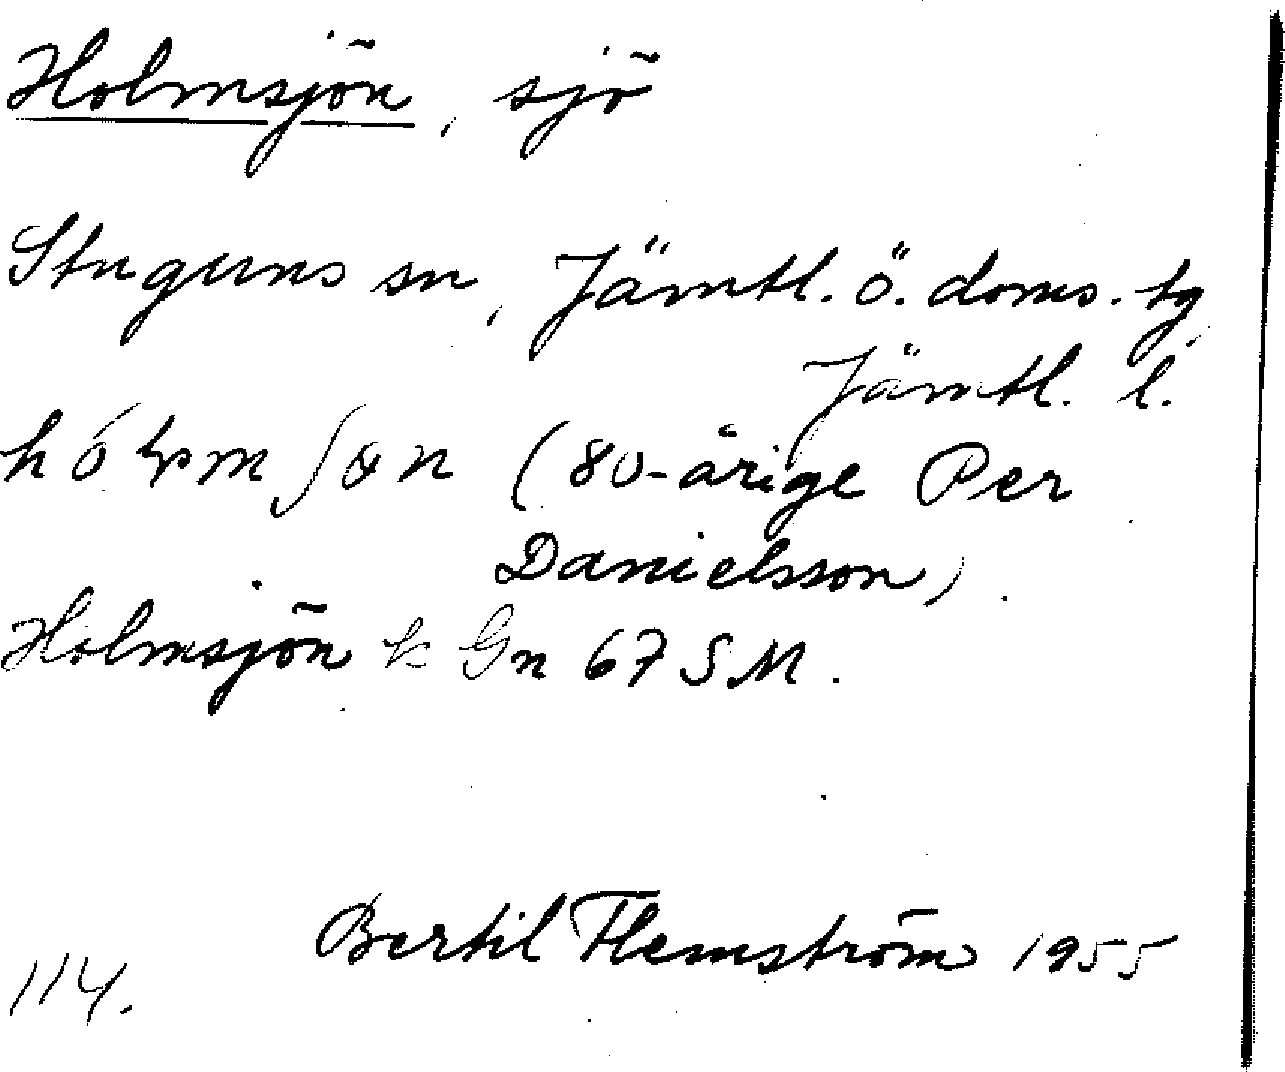 Holmsjön, sjö
Stuguns sn, Jämtl. ö. doms. tg
Jämtl. l.
(80-årige Per
Danielsson).
Holmsjön k Gn 67 SM.
Bertil Flemström 1955
114.